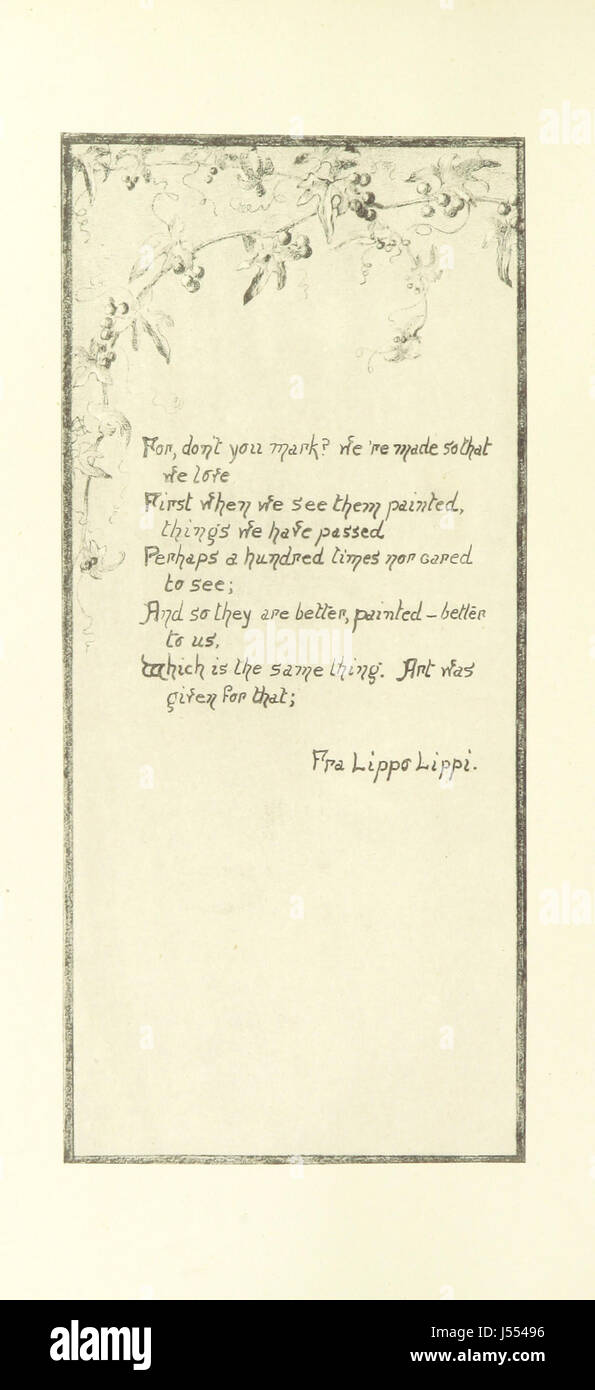 For, don't you mark? We're made so that
we love
First when we see them painted,
things we have passed
Perhaps a hundred times nor cared
to see;
And so they are better, painted – better
to us,
Which is the same thing. Art was
given for that;
Fra Lippo Lippi.
alamy
a
alamy stock photo
J55496
www.alamy.com